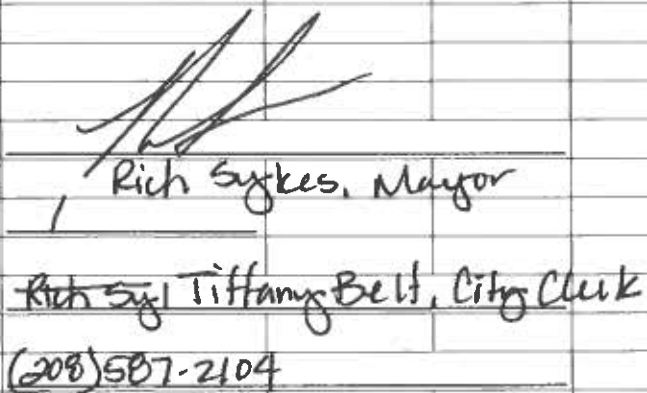 Rich Sykes, Mayor
/
Rich Syl Tiffany Belt, City Clerk
(208)587-2104